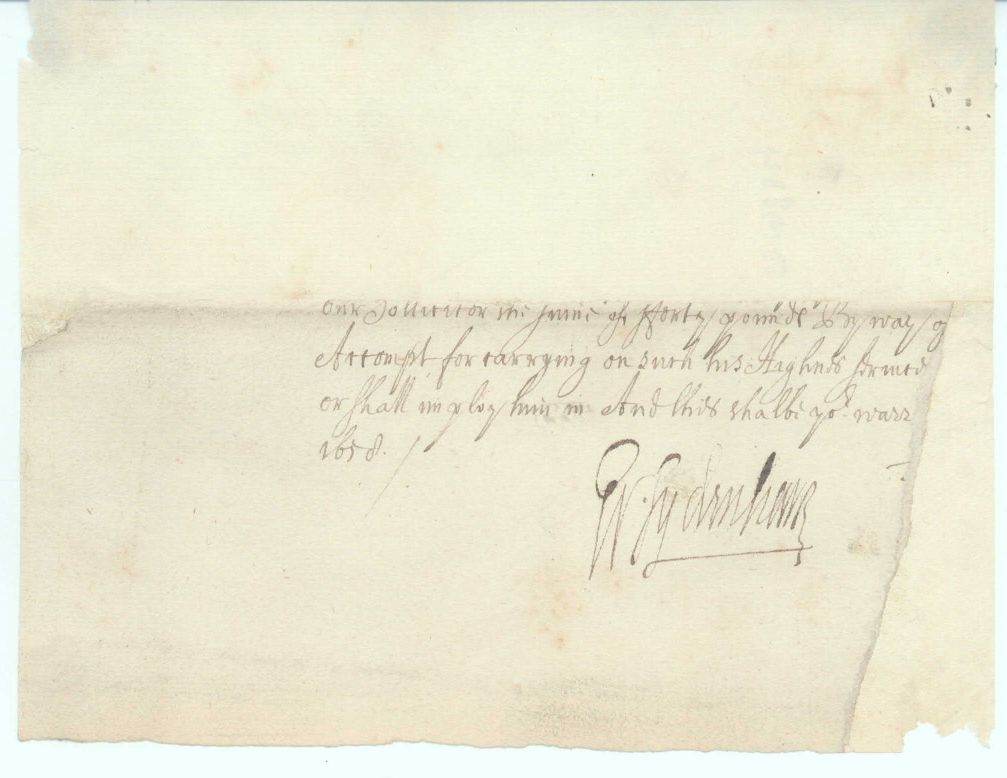 our Sollicitor the su̅me of fforty pounds By way o
Accompt, for carrying on such his Highnes service
or shall imploy him in And this shalbe yor. warr
1658.
Wm. Sydenham